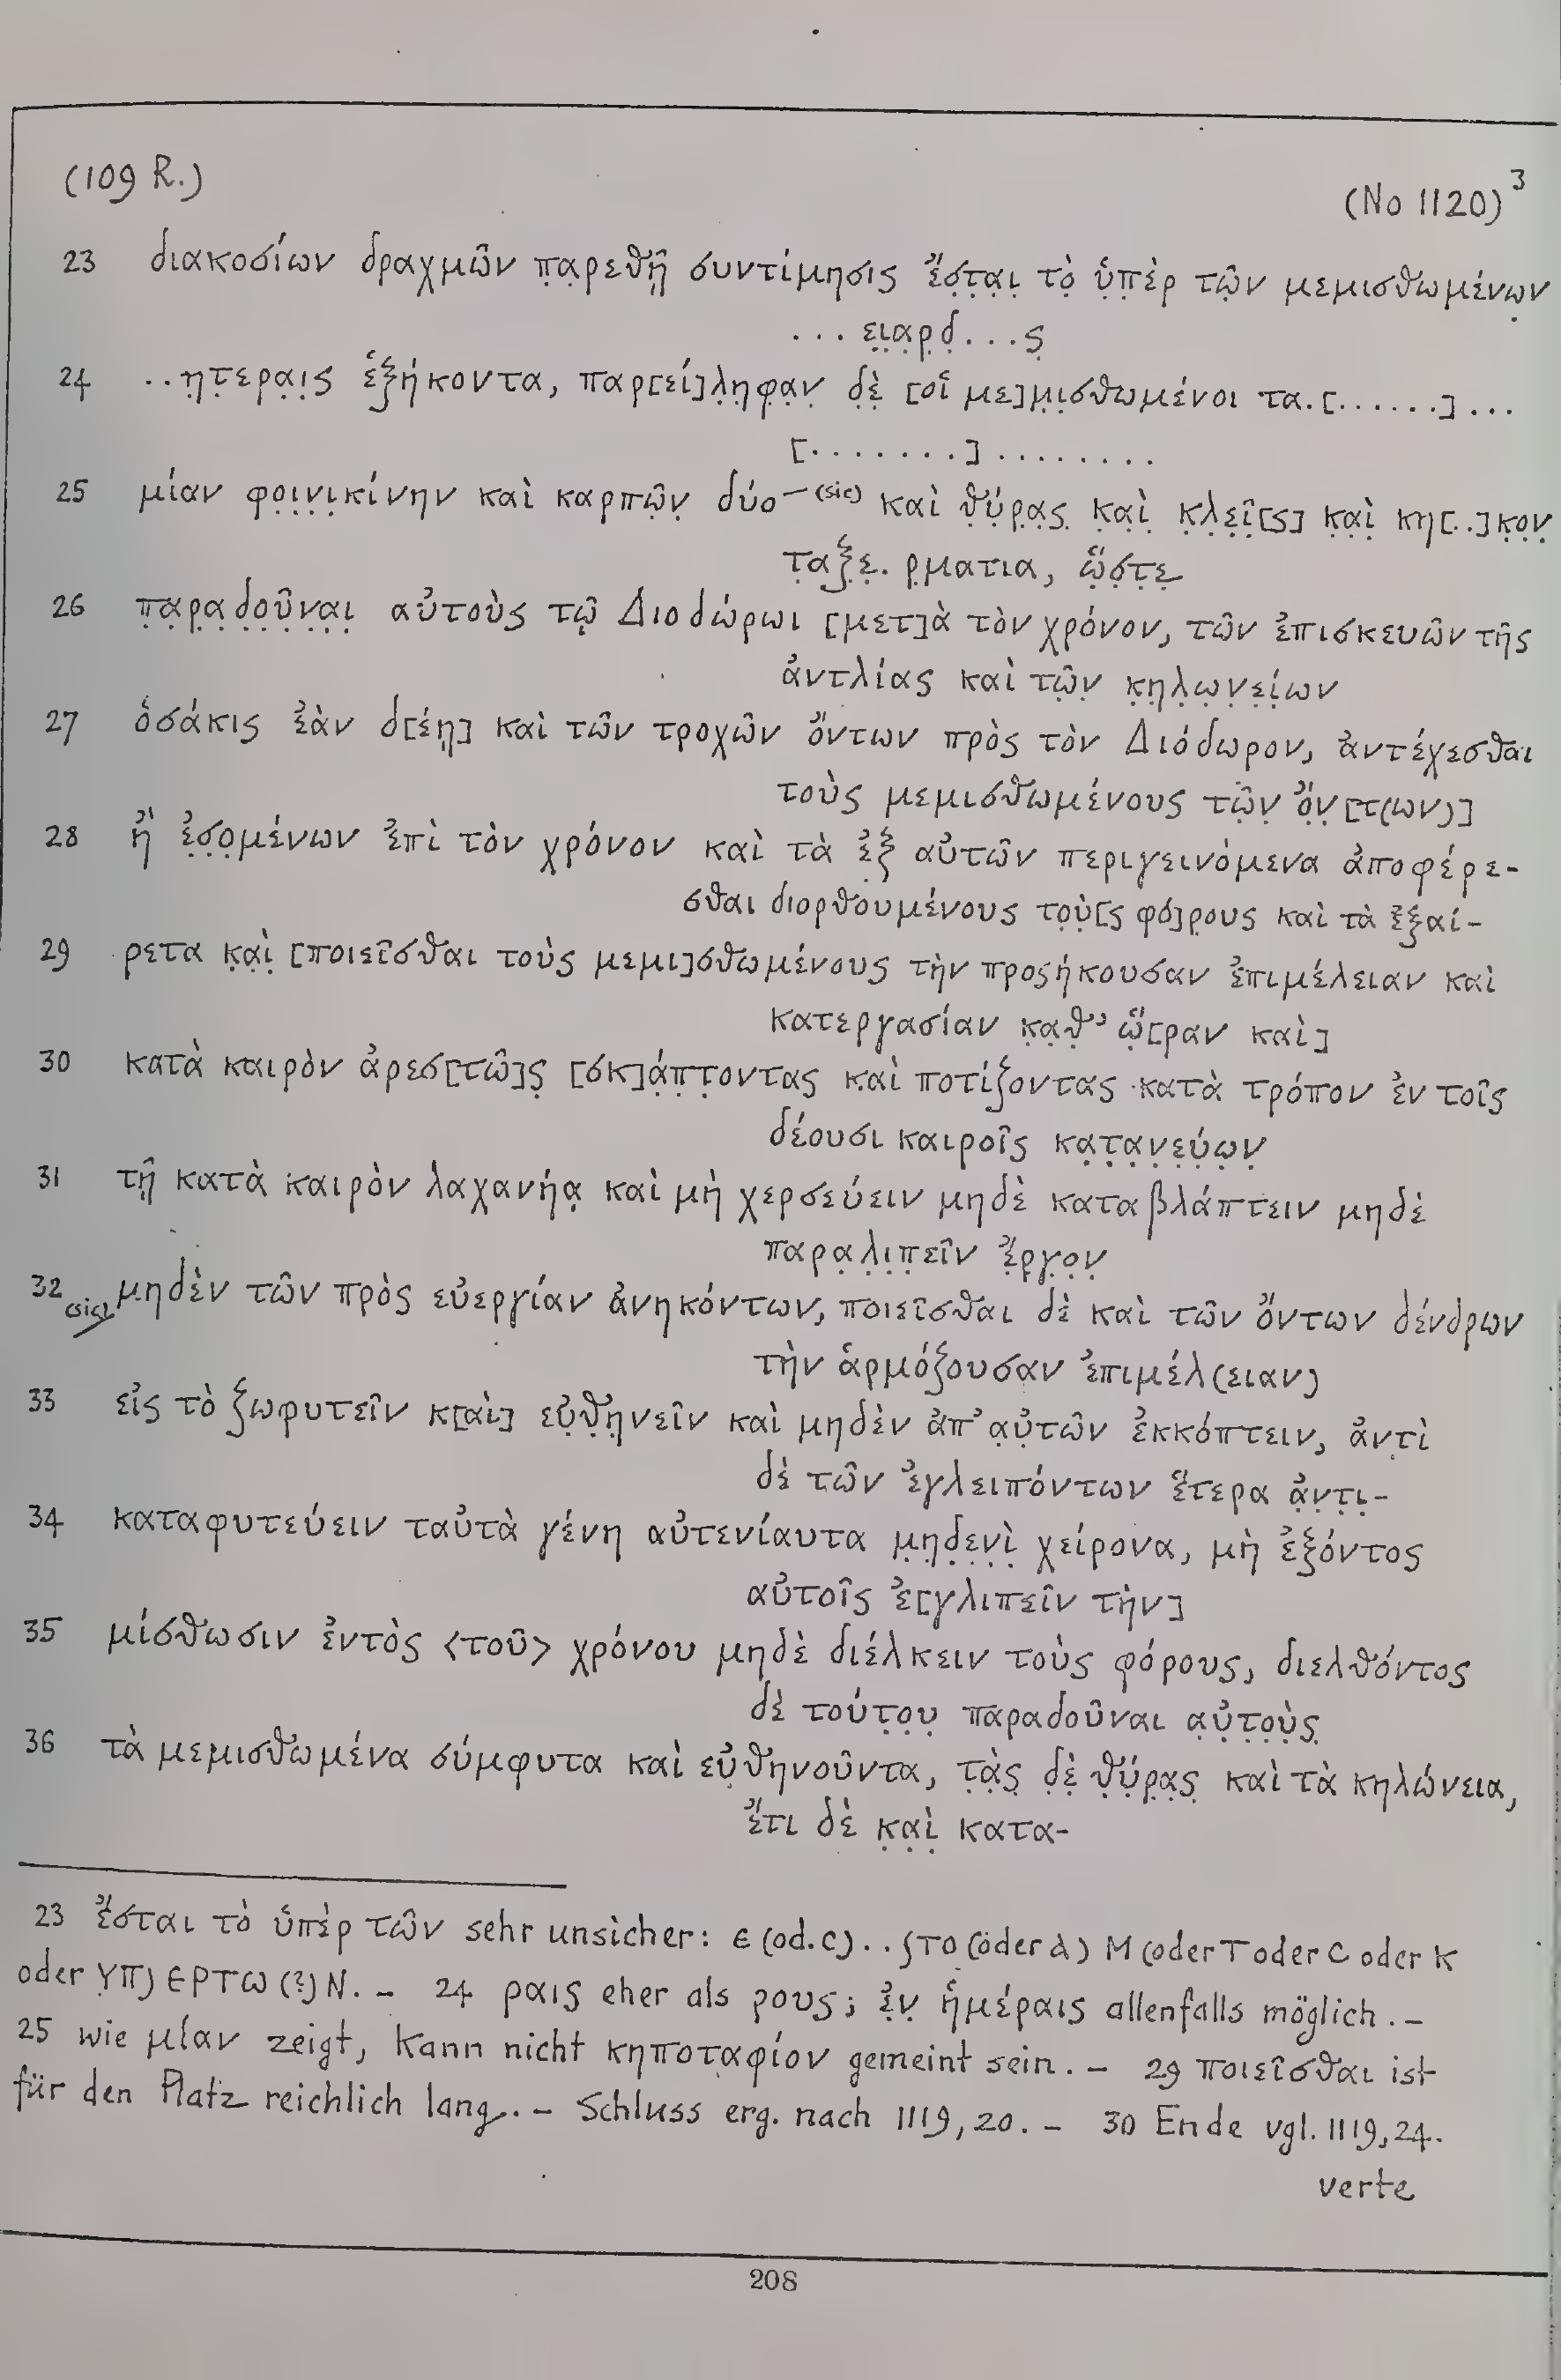 (109 R.)
(No 1120)³
23 διακοσίων δραχμῶν π̣α̣ρεθῇ̣ συντίμησις ἔ̣σ̣τ̣α̣ι̣ τὸ̣ ὑ̣π̣ὲρ τῶ̣ν μεμισθωμένω̣ν
... ε̣ι̣α̣ρ̣δ̣...ς̣
24 ..η̣τ̣ερα̣ι̣ς ἑξήκοντα, παρ[εί]λ̣η̣φα̣ν̣ δ̣ὲ̣ [οἱ με]μ̣ι̣σθωμένοι τα.[......]...
[.......]........
25 μίαν φο̣ι̣ν̣ι̣κίνην καὶ καρπῶ̣ν̣ δύο – (sic) καὶ θ̣ύ̣ρ̣α̣ς̣ κ̣α̣ὶ̣ κ̣λ̣ε̣ῖ̣[ς] κ̣α̣ὶ̣ κη[..]κ̣ο̣ν̣
τ̣αξ̣ε̣. ρ̣ματια, ὥ̣σ̣τ̣ε̣
26 π̣α̣ρ̣α̣δ̣ο̣ῦ̣ν̣α̣ι̣ αὐτοὺς τῷ Διοδώρωι [μετ]ὰ τὸν χρόνον, τῶν ἐπισκευῶν τῆς
ἀντλίας καὶ τῶ̣ν̣ κ̣η̣λ̣ω̣ν̣ε̣ί̣ων
27 ὁσάκις ἐὰν δ[έῃ] καὶ τῶν τροχῶν ὄντων πρὸς τὸν Διόδωρον, ἀντέχεσθαι
τοὺς μεμισθωμένους τῶ̣ν̣ ὄ̣ν̣[τ(ων)]
28 ἢ ἐ̣σ̣ο̣μένων ἐπὶ τὸν χρόνον καὶ τὰ ἐξ αὐτῶν περιγεινόμενα ἀποφέρε-
σθαι διορθουμένους το̣ὺ̣[ς φό]ρ̣ους καὶ τὰ ἐξαί-
29 ρετα κ̣α̣ὶ̣ [ποιεῖσθαι τοὺς μεμι]σθωμένους τὴν προςήκουσαν ἐπιμέλειαν καὶ
κατεργασίαν κ̣α̣θ̣’ ὥ̣[ραν καὶ]
30 κατὰ καιρὸν ἀρεσ[τῶ]ς̣ [σκ]ά̣π̣τ̣οντας καὶ ποτίζοντας κατὰ τρόπον ἐν τοῖς
δέουσι καιροῖς κα̣τ̣α̣ν̣ε̣ύ̣ω̣ν̣
31 τῇ κατὰ καιρὸν λαχανήᾳ καὶ μὴ χερσεύειν μηδὲ καταβλάπτειν μηδὲ
παρα̣λ̣ι̣π̣εῖν ἔ̣ρ̣γ̣ο̣ν̣
32 (sic) μηδὲν τῶν πρὸς εὐεργίαν ἀνηκόντων, ποιεῖσθαι δὲ καὶ τῶν ὄντων δένδρων
τὴν ἁρμόζουσαν ἐπιμέλ(ειαν)
33 εἰς τὸ ζωφυτεῖν κ[αὶ] εὐ̣θ̣η̣νεῖν καὶ μηδὲν ἀπ’ α̣ὐ̣τῶν ἐκκόπτειν, ἀντὶ
δὲ τῶν ἐγλειπόντων ἕτερα ἀ̣ν̣τ̣ι̣-
34 καταφυτεύειν ταὐτὰ γένη αὐτενίαυτα μ̣η̣δ̣ε̣ν̣ὶ̣ χείρονα, μὴ ἐξόντος
αὐτοῖς ἐ[γλιπεῖν τὴν]
35 μίσθωσιν ἐντὸς <τοῦ> χρόνου μηδὲ διέλκειν τοὺς φόρους, διελθόντος
δὲ τούτ̣ο̣υ̣ παραδοῦναι α̣ὐ̣τ̣ο̣ὺ̣ς̣
36 τὰ μεμισθωμένα σύμφυτα καὶ εὐ̣θηνοῦντα, τ̣ὰ̣ς̣ δ̣ὲ̣ θ̣ύ̣ρ̣α̣ς̣ καὶ τὰ κηλώνεια,
ἔτι δὲ κ̣α̣ὶ̣ κατα-
23 ἔσται τὸ ὑπὲρ τῶν sehr unsicher: Є (od. C) . . ʃ TO (oder λ) M (oder T oder C oder K
oder ΥΠ) ЄΡΤω (?) N. – 24 ραις eher als ρους; ἐ̣ν̣ ἡμέραις allenfalls möglich. –
25 wie μίαν zeigt, kann nicht κηποταφίον gemeint sein. – 29 ποιεῖσθαι ist
für den Platz reichlich lang. – Schluss erg. nach 1119,20. – 30 Ende vgl. 1119,24.
verte
208